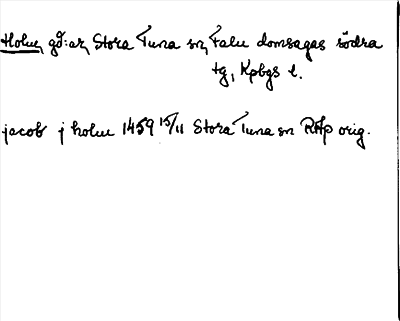 Holm, gd:ar, Stora Tuna sn, Falu domsagas södra
tg, Kpbgs l.
jacob j holm 1459 15/11 Stora Tuna sn RAp orig.